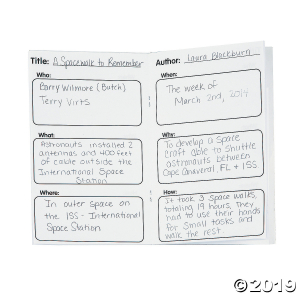 Title: A Spacewalk to Remember
Who:
Barry Wilmore (Butch)
Terry Virts
What:
Astronauts installed 2
antennas and 400 feet
of cable outside the
International Space
Station
Where:
In outer space on
the ISS - International
Space Station
Author: Laura Blackburn
When:
The week of
March 2nd, 2014
Why:
To develop a space
craft able to shuttle
astronauts between
Cape Canaveral, FL + ISS
How:
It took 3 space walks,
totaling 19 hours. They
had to use their hands
for small tasks and
walk the rest
©2019